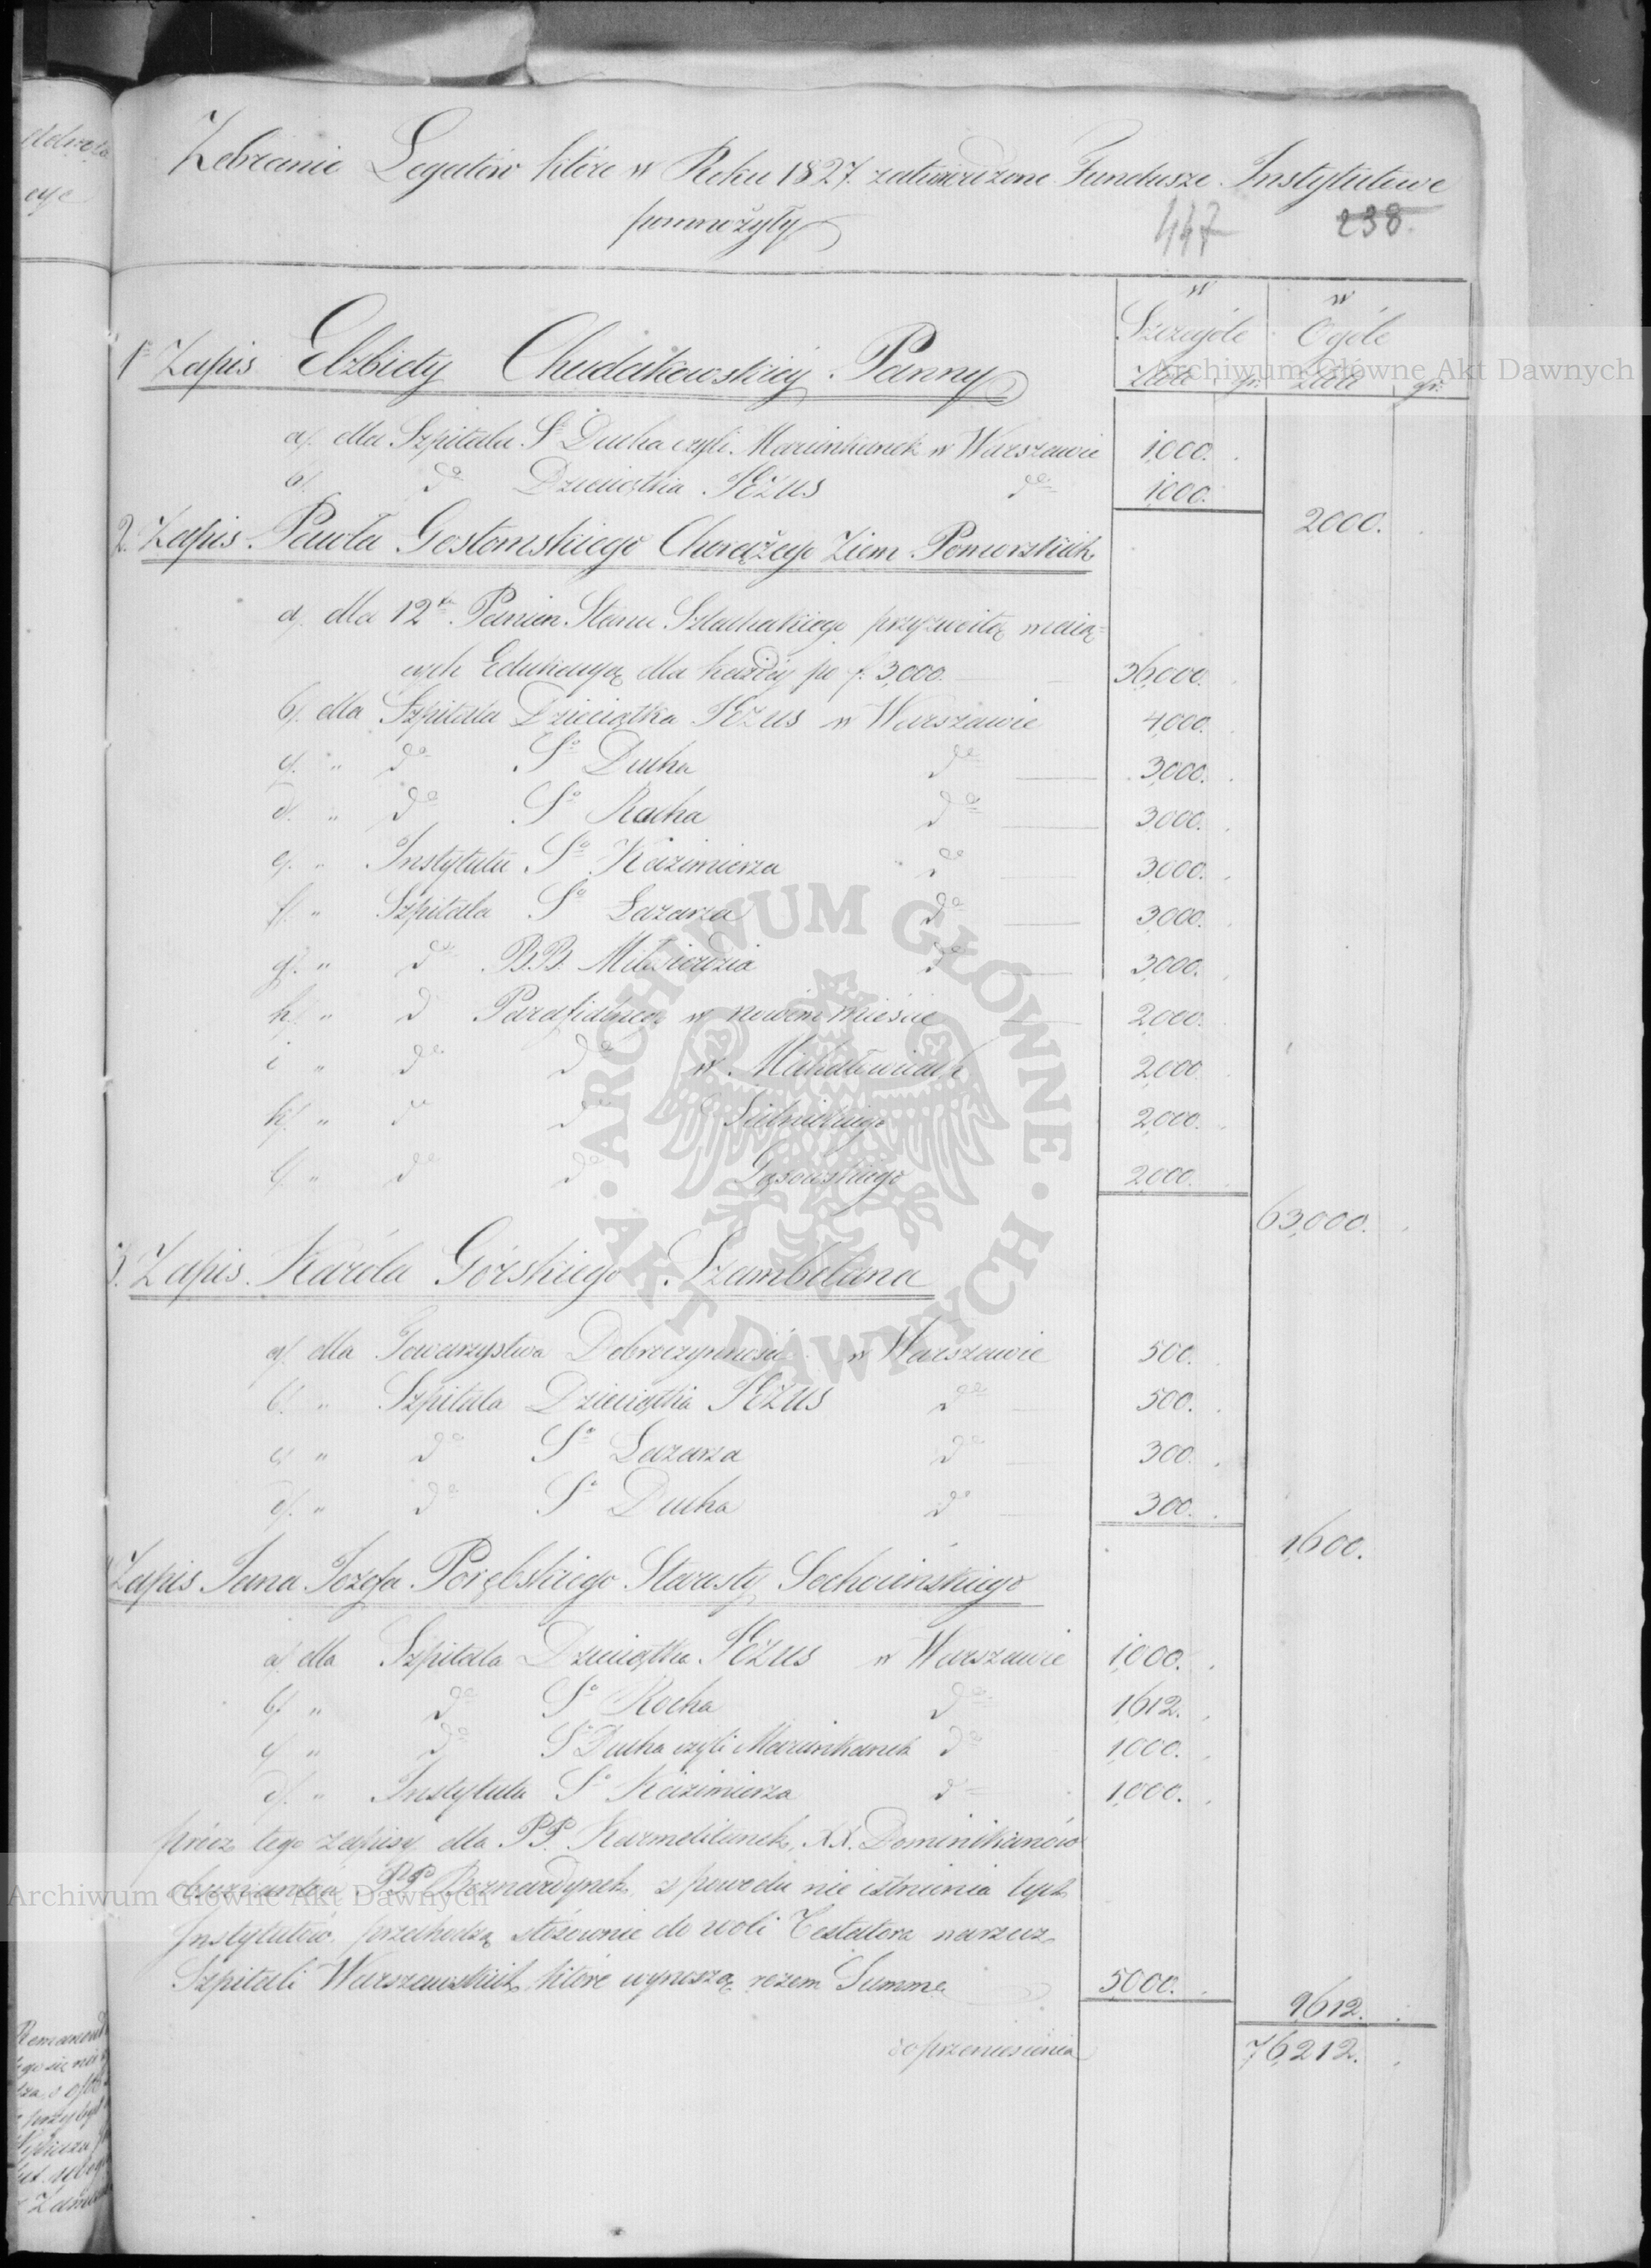 Zebranie Legatów które w Roku 1827. zatwierdzone Fundusze Instytutowe
pomnożyły
447 238.
w Szczególe w Ogóle
złote gr. złote gr.
1° Zapis Elzbiety Chudakowskiey Panny
a/. dla Szpitala S° Ducha czyli Marcinkanek w Warszawie 1,000.
b/. d° Dzieciątka Jezus d° 1,000.
2000.
2. Zapis Pawła Gostomskiego Chorążego Ziem Pomorskich
a/. dla 12tu Panien Stanu Szlacheckiego przyzwoitą maią=
cych Edukacyą dla każdey po f. 3,000. 36,000.
b/. dla Szpitala Dzieciątka Jezus w Warszawie 4,000.
c/. " d° S° Ducha d° 3,000.
d/. " d° S° Rocha d° 3,000.
e/. " Instytutu S° Kazimierza d° 3,000.
f/. " Szpitala S° Lazarza d° 3,000.
g/. " d° B.B. Miłosierdzia d° 3,000.
h/. " d° Parafialnego w nowem mieście 2,000.
i " d° d° w 2,000.
k/. " d° d° 2,000.
l/. " d° d° Gąsowskiego 2,000.
63,000.
3. Zapis Karola Górskiego Szambelana
a/. dla Towarzystwa Dobroczynności w Warszawie 500.
b/. " Szpitala Dzieciątka Jezus d° 500.
c/. " d° S° Lazarza d° 300.
d/. " d° S° Ducha d° 300.
1,600.
Zapis Jana Jozefa Porębskiego Starosty Sochocińskiego
a/. dla Szpitala Dzieciątka Jezus w Warszawie 1,000.
b/. " d° S° Rocha d° 1,612.
c/. " d° S° Ducha czyli Marcinkanek d° 1,000.
d/. " Instytutu S° Kazimierza d° 1,000.
prócz tego zapisy dla PP. Karmelitanek, XX. Dominikanów
obserwantów PP Bernardynek, z powodu nie istnienia tych
Instytutów przechodzą stosownie do woli Testatora na rzecz
Szpitali Warszawskich, które wynoszą razem Summę 5,000.
9,612.
do przeniesienia 76,212.
Archiwum Główne Akt Dawnych
ARCHIWUM GŁÓWNE · AKT DAWNYCH ·
Archiwum Główne Akt Dawnych